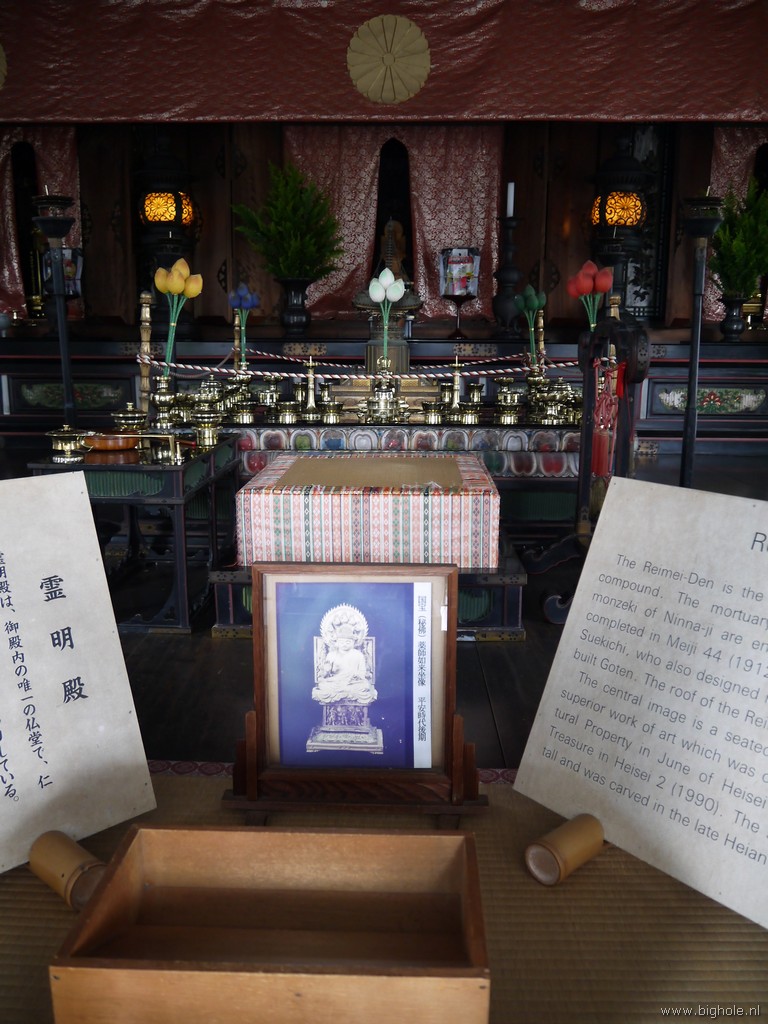 霊明殿
霊明殿は、御殿内の唯一の仏堂で、仁
ている。
国宝（秘佛）薬師如来坐像　平安時代後期
R
The Reimei-Den is the
compound. The mortuary
monzeki of Ninna-ji are en
completed in Meiji 44 (1912
Suekichi, who also designed
built Goten. The roof of the Rei
The central image is a seated
superior work of art which was
tural Property in June of Heisei
Treasure in Heisei 2 (1990). The
tall and was carved in the late Heian
www.bighole.nl